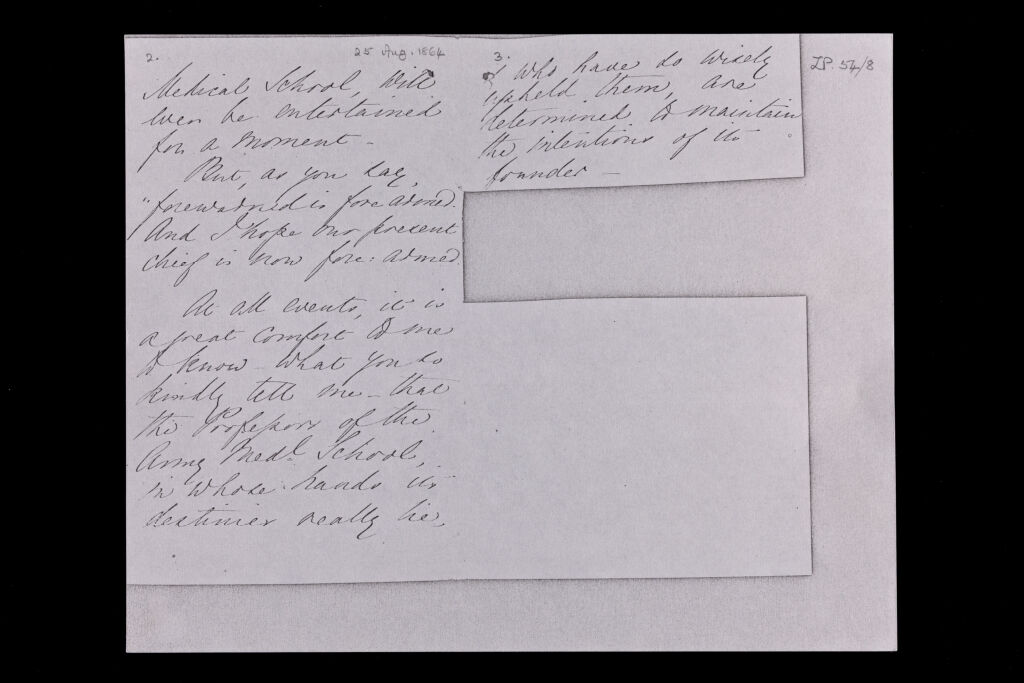 2.
25 Aug. 1864
Medical School, will
even be entertained
for a moment -
But, as you say,
"forewarned is fore armed."
And I hope our present
chief is now fore: armed.
At all events, it is
a great comfort to me
to know - what you so
kindly tell me - that
the Professors of the
Army Medl. School,
in whose hands its
destinies really lie,
3.
& who have so wisely
upheld them, are
determined to maintain
the intentions of its
founder -
LP. 54/8